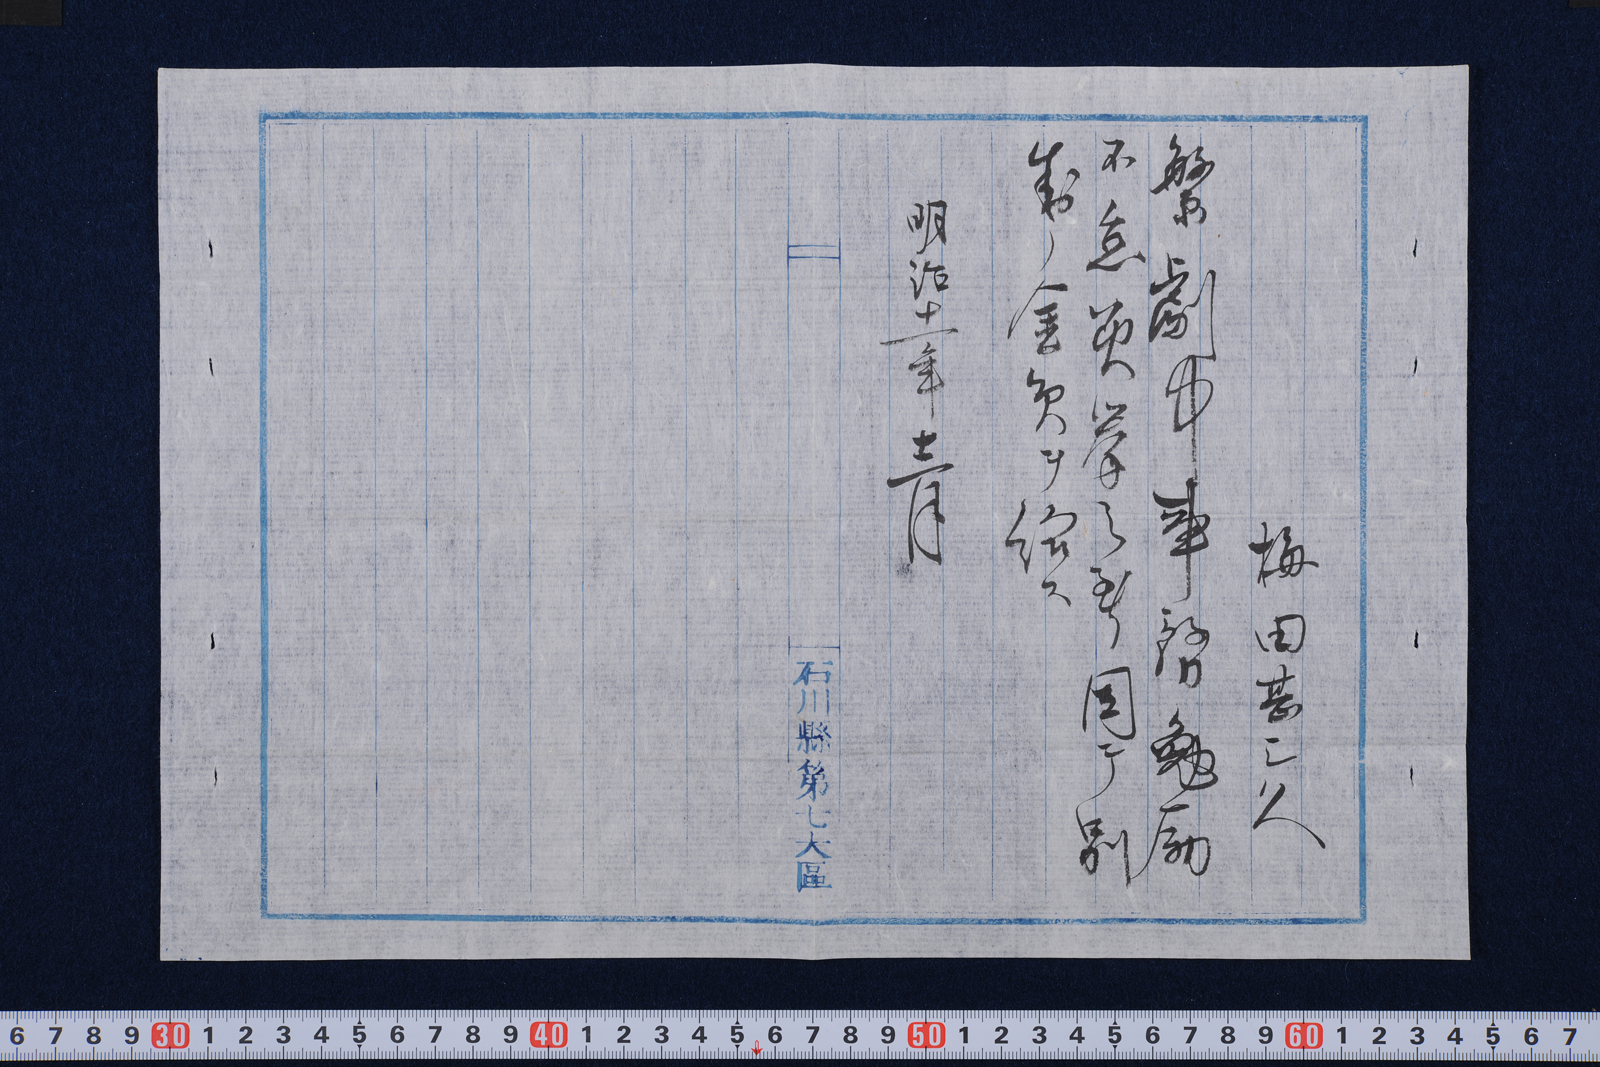 梅田甚三久
繁劇中事務勉励
不怠挙之因テ別
封ノ金員ヲ給ス
明治十一年十二月
石川縣第七大區
6 7 8 9 30 1 2 3 4 5 6 7 8 9 40 1 2 3 4 5 6 7 8 9 50 1 2 3 4 5 6 7 8 9 60 1 2 3 4 5 6 7